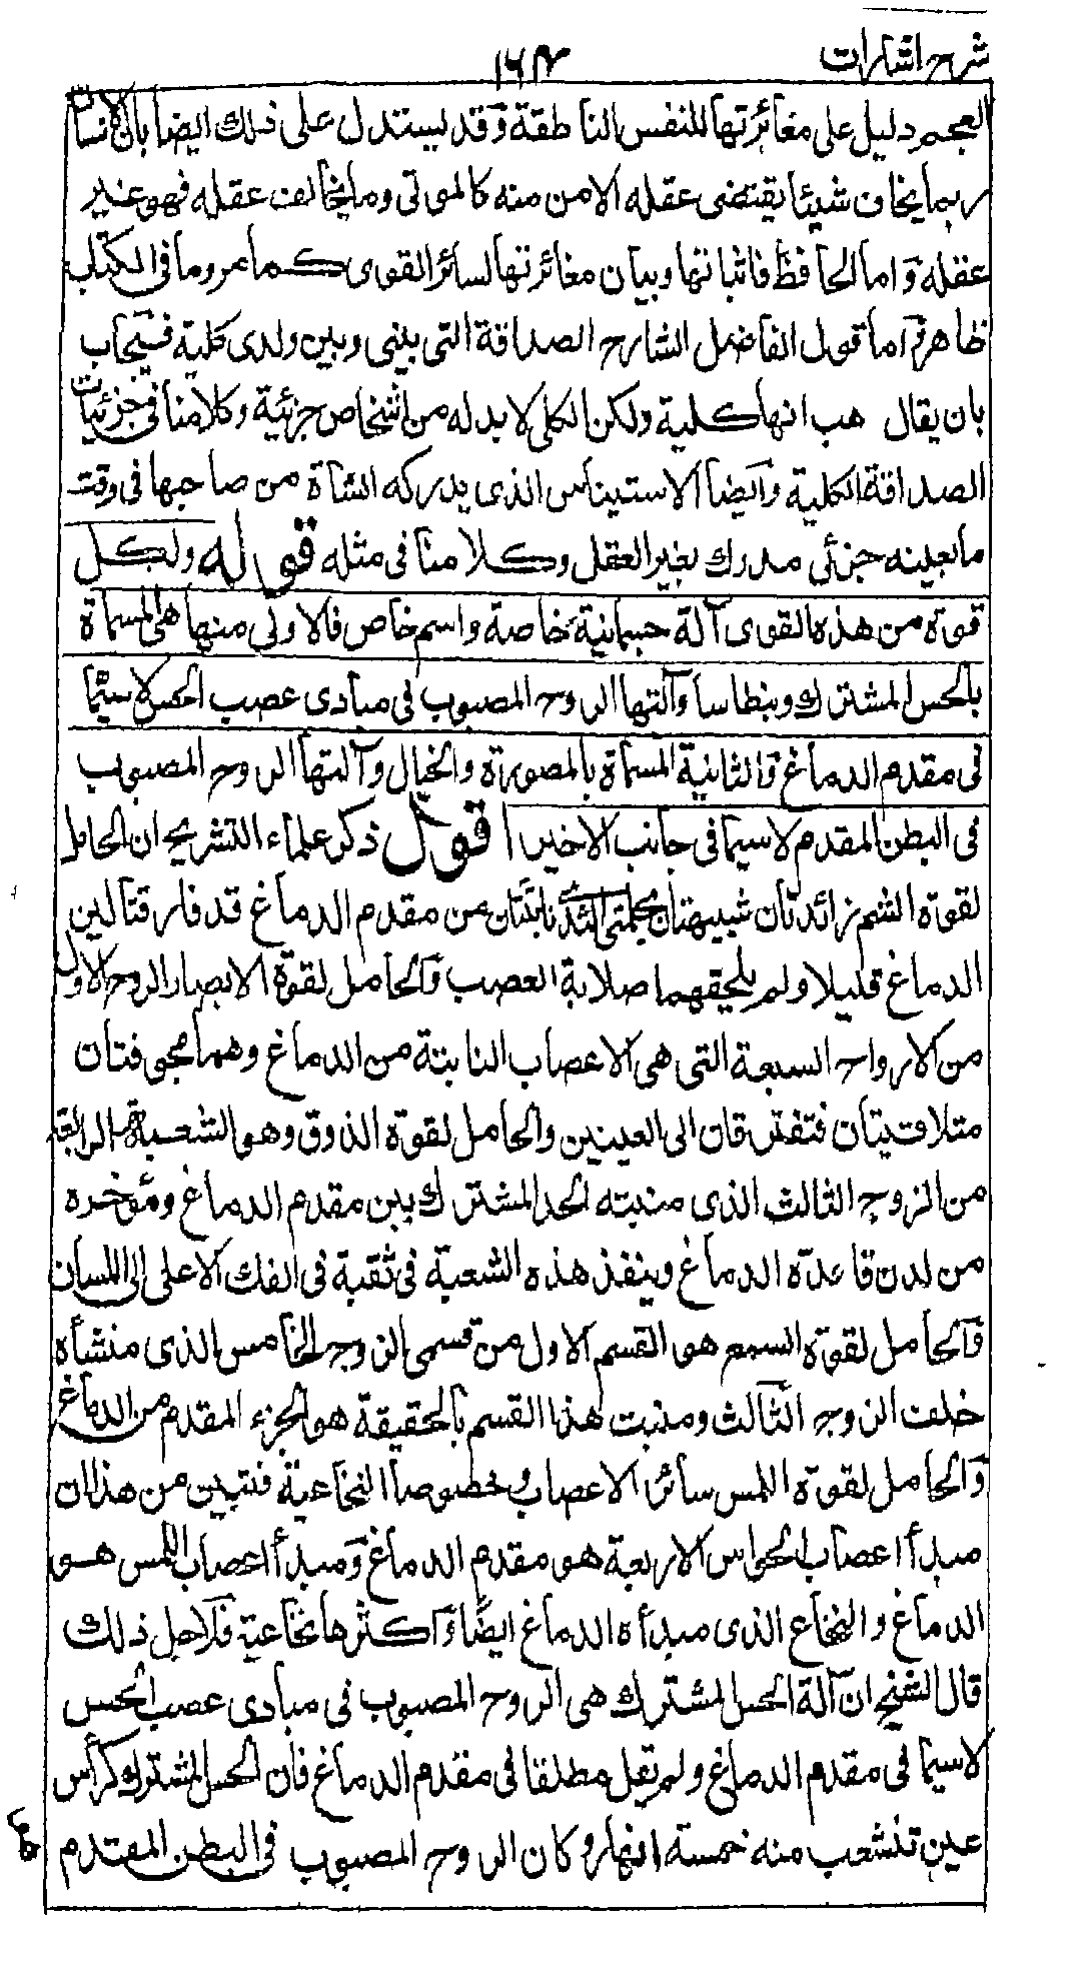 شرح اشارات
١٦٤
العجم دليل على مغائرتها للنفس الناطقة وقد يستدل على ذلك ايضا بان الانسان
ربما يخاف شيئا يقتضى عقله الامن منه كالموتى وما يخالف عقله فهو غير
عقله واما الحافظة فاثباتها وبيان مغائرتها لسائر القوى كما مر وما فى الكتاب
ظاهر واما قول الفاضل الشارح الصداقة التى بينى وبين ولدى كلية فيجاب
بان يقال هب انها كلية ولكن الكلى لا بد له من اشخاص جزئية وكلامنا فى جزئيات
الصداقة الكلية وايضا الاستيناس الذى يدركه الشاة من صاحبها فى وقت
ما بعينه جزئى مدرك بغير العقل وكلامنا فى مثله قوله ولكل
قوة من هذه القوى آلة جسمانية خاصة واسم خاص فالاولى منها هى المسماة
بالحس المشترك وبنطاسا وآلتها الروح المصبوب فى مبادى عصب الحس لا سيما
فى مقدم الدماغ والثانية المسماة بالمصورة والخيال وآلتها الروح المصبوب
فى البطن المقدم لا سيما فى جانب الاخير اقول ذكر علماء التشريح ان الحامل
لقوة الشم زائدتان شبيهتان بحلمتى الثدى نابتتان من مقدم الدماغ قد فارقتا لين
الدماغ قليلا ولم يلحقهما صلابة العصب والحامل لقوة الابصار الزوج الاول
من الازواج السبعة التى هى الاعصاب النابتة من الدماغ وهما مجوفتان
متلاقيتان فتفترقان الى العينين والحامل لقوة الذوق وهو الشعبة الرابعة
من الزوج الثالث الذى منبته الحد المشترك بين مقدم الدماغ ومؤخره
من لدن قاعدة الدماغ وينفذ هذه الشعبة فى ثقبة فى الفك الاعلى الى اللسان
والحامل لقوة السمع هو القسم الاول من قسمى الزوج الخامس الذى منشأه
خلف الزوج الثالث ومنبت هذا القسم بالحقيقة هو الجزء المقدم من الدماغ
والحامل لقوة اللمس سائر الاعصاب وخصوصا النخاعية فتبين من هذا ان
مبدأ اعصاب الحواس الاربعة هو مقدم الدماغ ومبدأ اعصاب اللمس هو
الدماغ والنخاع الذى مبدأه الدماغ ايضا واكثرها نخاعية فلاجل ذلك
قال الشيخ ان آلة الحس المشترك هى الروح المصبوب فى مبادى عصب الحس
لا سيما فى مقدم الدماغ ولم يقل مطلقا فى مقدم الدماغ فان الحس المشترك كرأس
عين تنشعب منه خمسة انهار وكان الروح المصبوب فى البطن المقدم